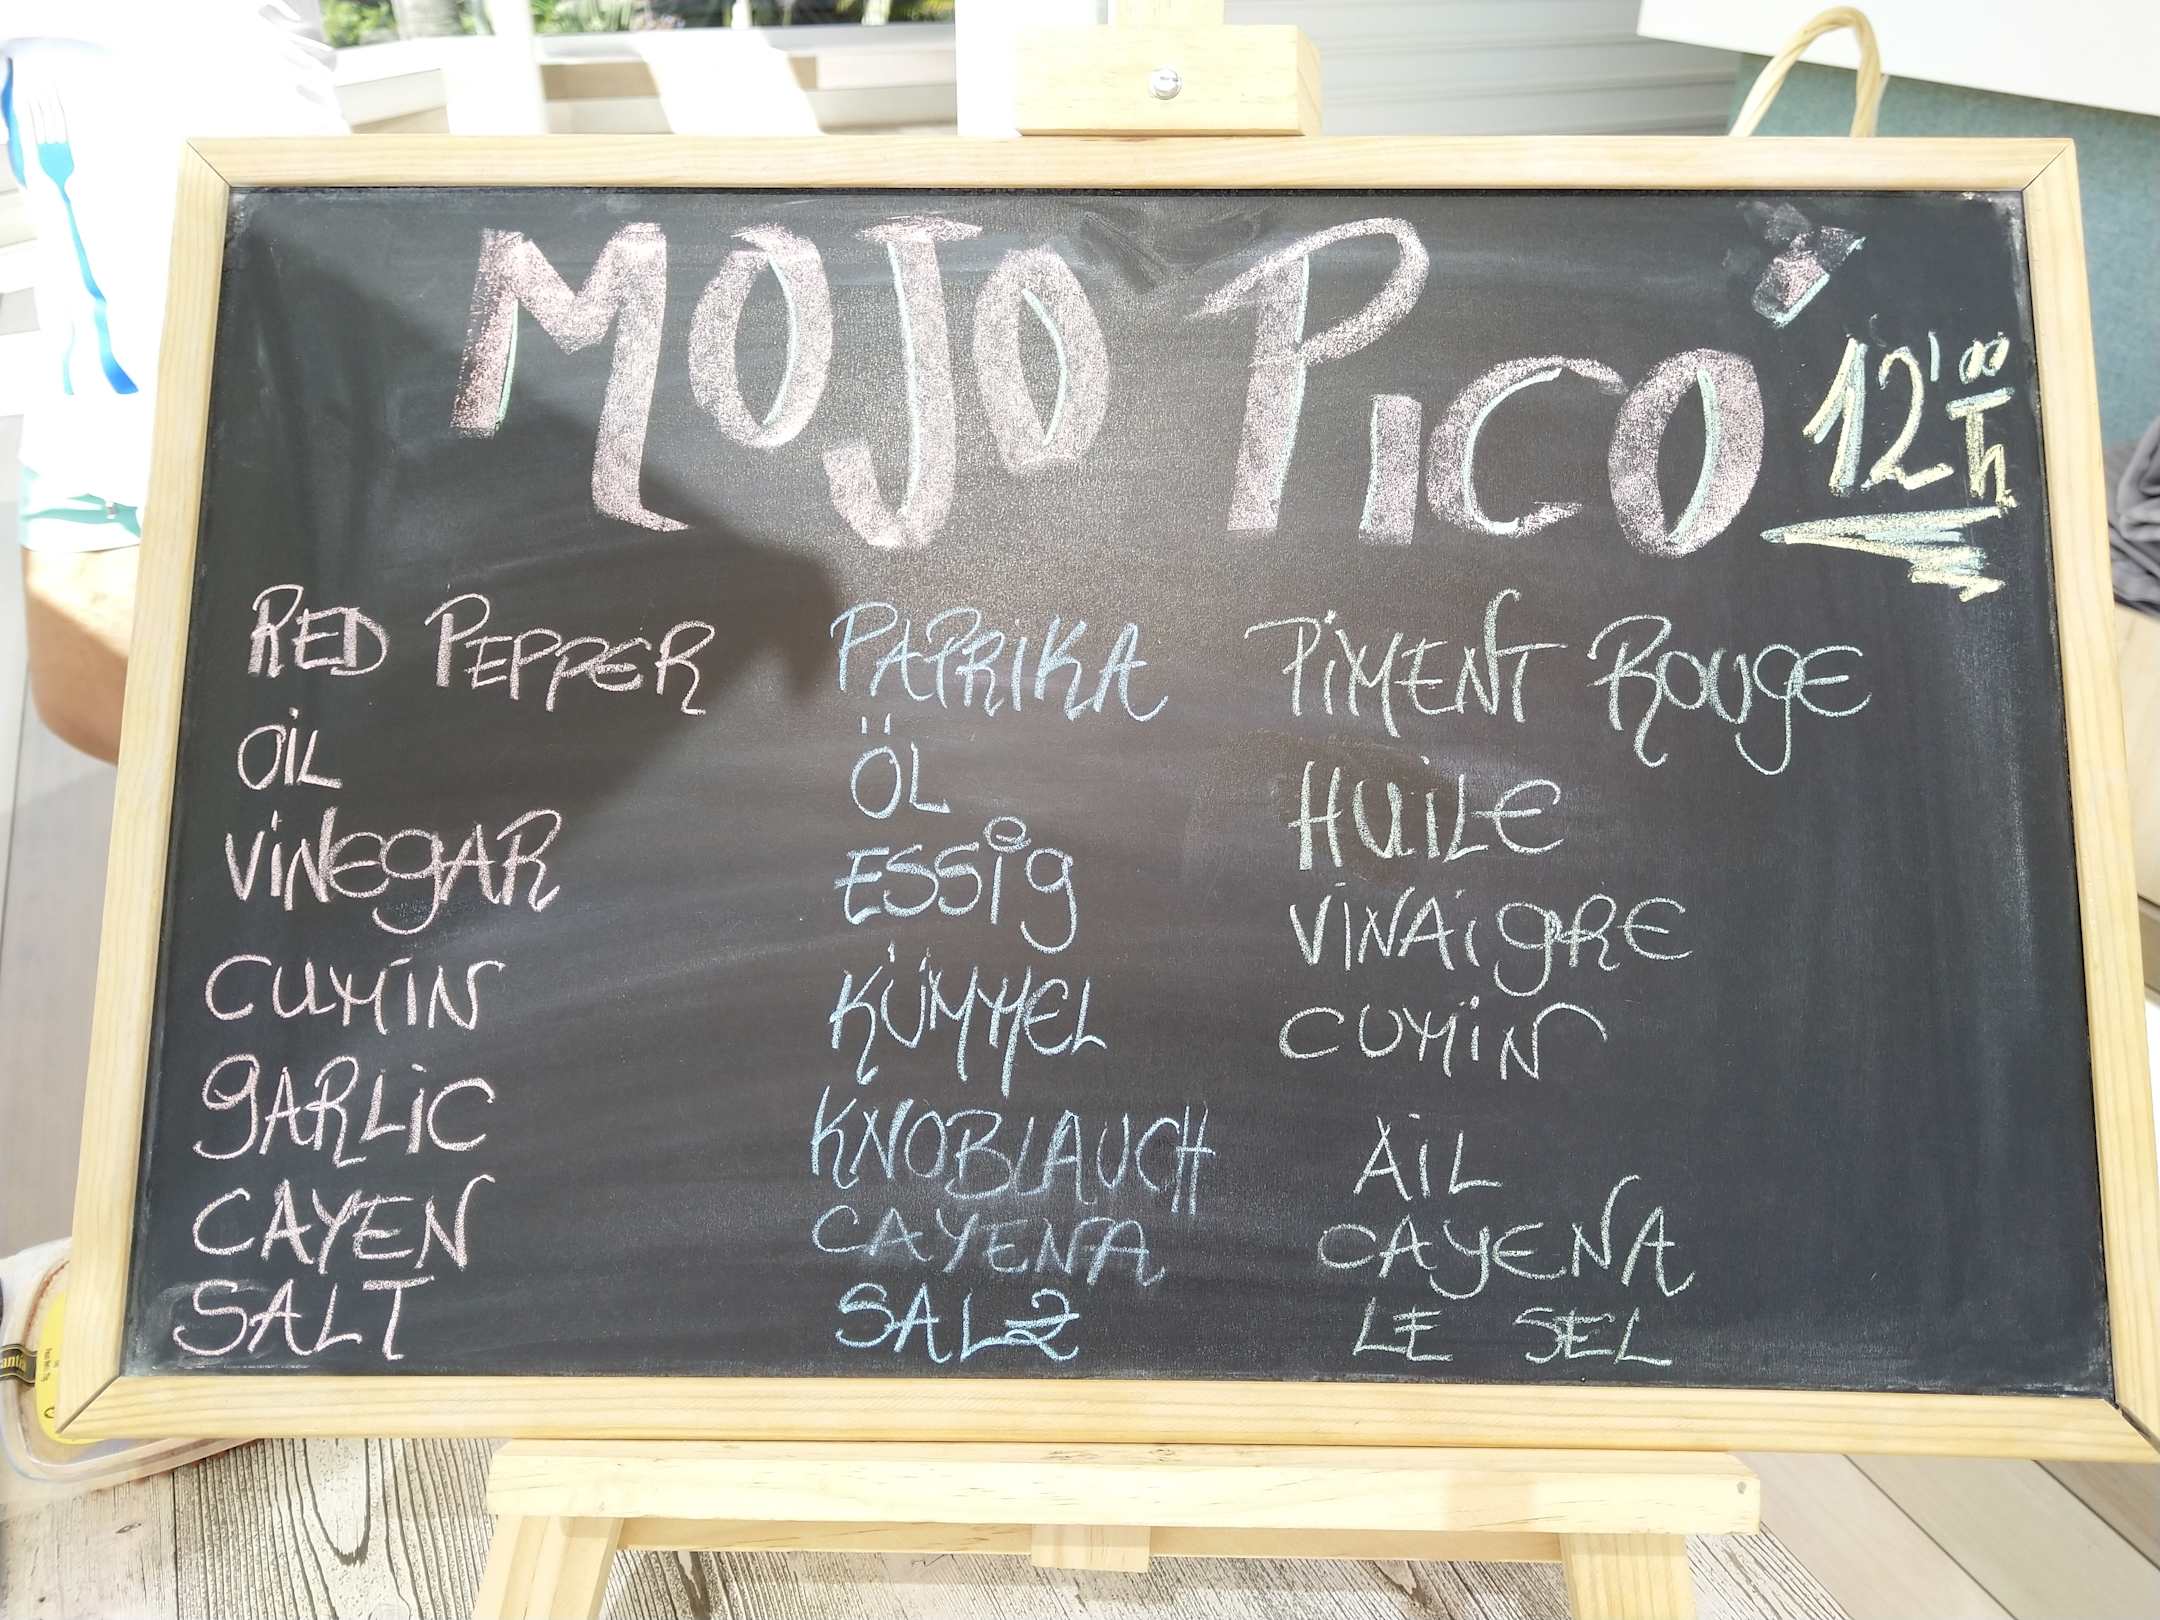 MOJO PICO
12'00 h
RED PEPPER PAPRIKA PIMENT ROUGE
OIL ÖL HUILE
VINEGAR ESSIG VINAIGRE
CUMIN KÜMMEL CUMIN
GARLIC KNOBLAUCH AIL
CAYEN CAYENA CAYENA
SALT SALZ LE SEL